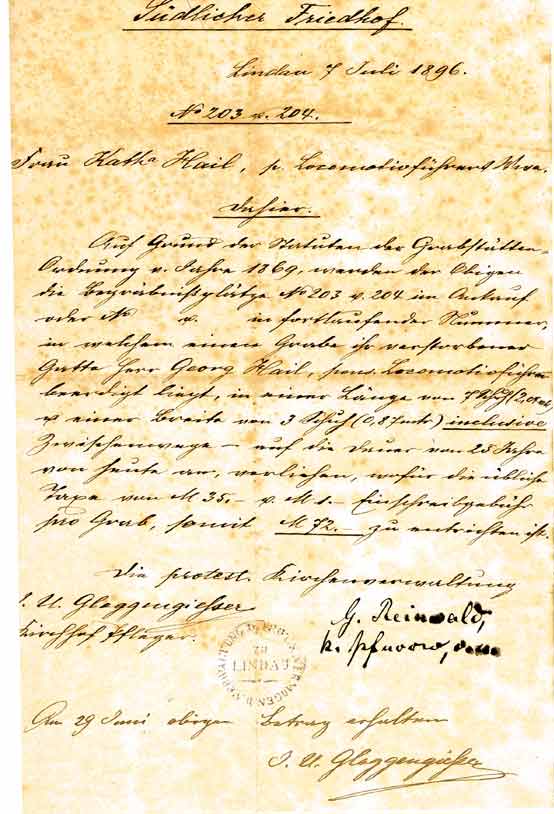 Südlicher Friedhof.
Lindau 7 Juli 1896.
No 203 u. 204.
Frau Katha Hail, p. Locomotivführers Wwe.
Dahier.
Auf Grund der Statuten der Grabstätten-
Ordnung v. Jahre 1869, werden der Obigen
die Begräbnißplätze No 203 u. 204 im Ankauf
oder No u. in fortlaufender Nummer,
in welchem einen Grabe ihr verstorbener
Gatte Herr Georg Hail, pens. Locomotivführer
beerdigt liegt, in einer Länge von 7 Schuh
u einer Breite von 3 Schuh (0,87 mtr) inclusive
Zwischenwege – auf die Dauer von 25 Jahre
von heute an, verliehen, wofür die übliche
Taxe von M 35.- u. M 1.- Einschreibgebühr
pro Grab, somit M 72.- zu entrichten ist.
Die protest. Kirchenverwaltung
J. U. Gloggengiesser
Kirchhof Pfleger.
G. Reinwald,
k. Pfarrer,
LINDAU
Am 29 Juni obigen Betrag erhalten
J. U. Gloggengiesser